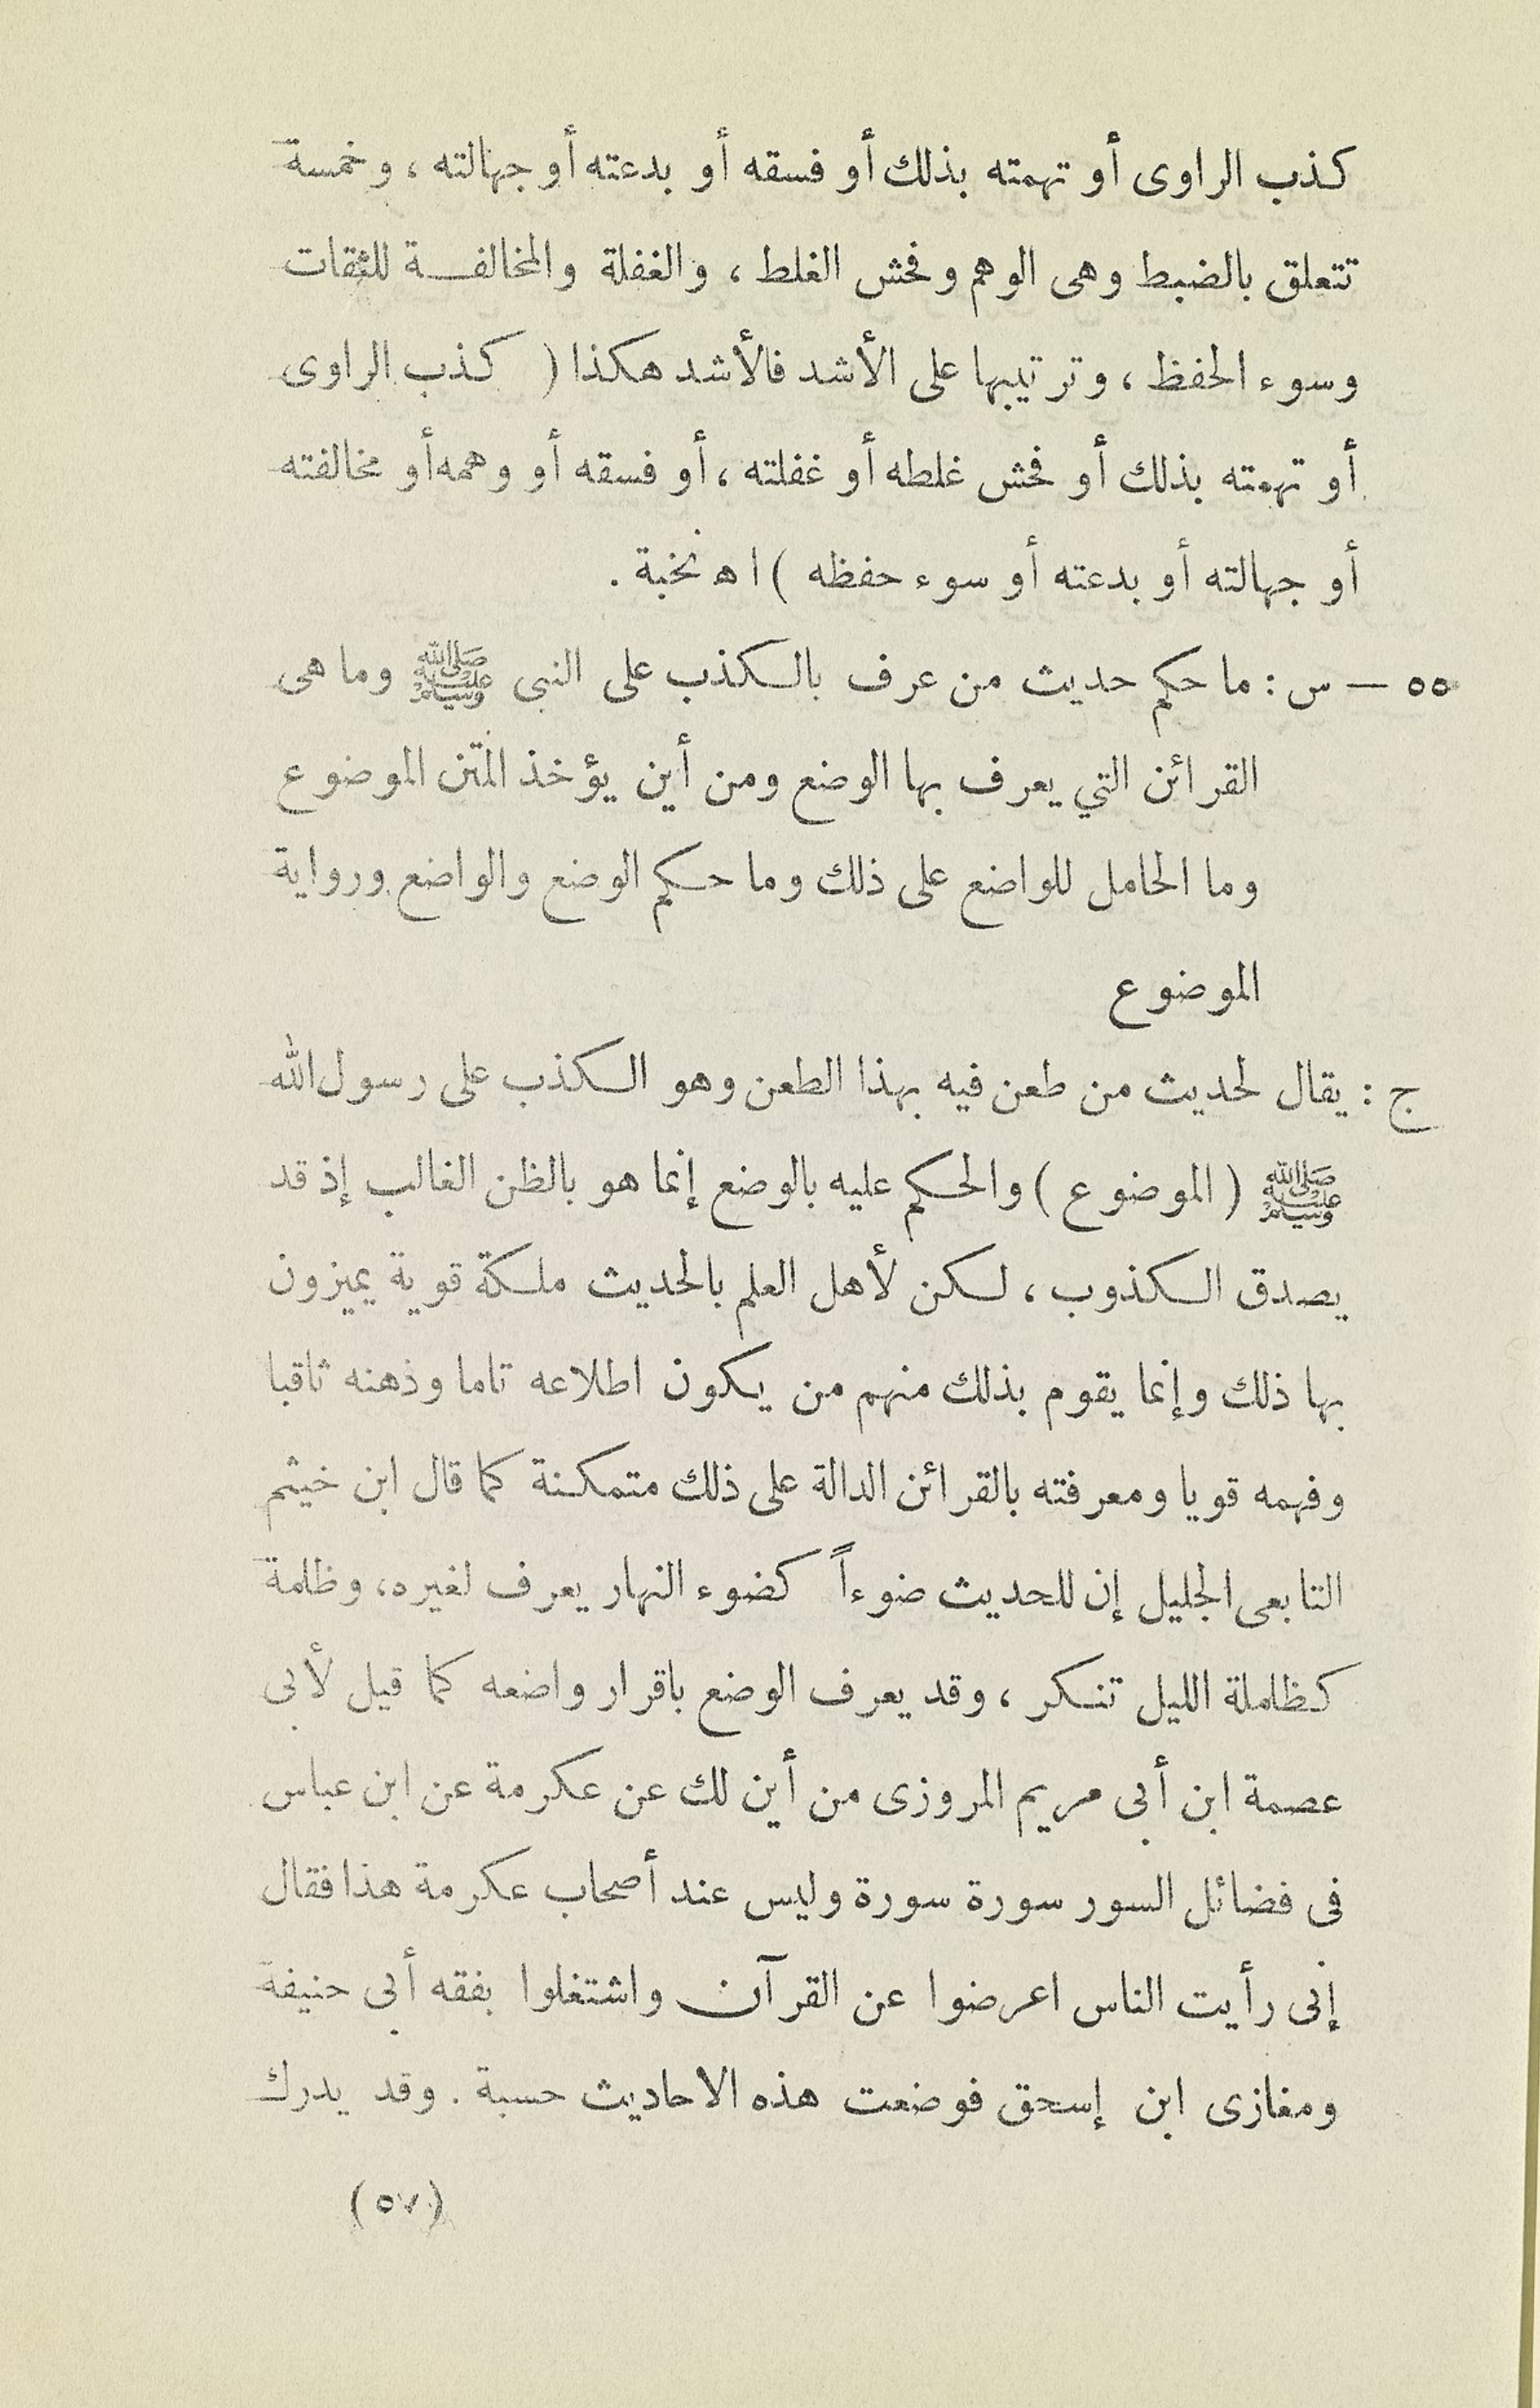 كذب الراوى أو تهمته بذلك أو فسقه أو بدعته أو جهالته ، وخمسة
تتعلق بالضبط وهى الوهم وفحش الغلط ، والغفلة والمخالفـــة للثقات
وسوء الحفظ ، وترتيبها على الأشد فالأشد هكذا ( كذب الراوى
أو تهمته بذلك أو فحش غلطه أو غفلته ، أو فسقه أو وهمه أو مخالفته
أو جهالته أو بدعته أو سوء حفظه ) اه نخبة .
٥٥ — س : ما حكم حديث من عرف بالكذب على النبى ﷺ وما هى
القرائن التي يعرف بها الوضع ومن أين يؤخذ المتن الموضوع
وما الحامل للواضع على ذلك وما حكم الوضع والواضع ورواية
الموضوع
ج : يقال لحديث من طعن فيه بهذا الطعن وهو الكذب على رسول الله
ﷺ ( الموضوع ) والحكم عليه بالوضع إنما هو بالظن الغالب إذ قد
يصدق الكذوب ، لكن لأهل العلم بالحديث ملكة قوية يميزون
بها ذلك وإنما يقوم بذلك منهم من يكون اطلاعه تاما وذهنه ثاقبا
وفهمه قويا ومعرفته بالقرائن الدالة على ذلك متمكنة كما قال ابن خيثم
التابعى الجليل إن للحديث ضوءاً كضوء النهار يعرف لغيره، وظلمة
كظاملة الليل تنكر ، وقد يعرف الوضع باقرار واضعه كما قيل لأبى
عصمة ابن أبى مريم المروزى من أين لك عن عكرمة عن ابن عباس
فى فضائل السور سورة سورة وليس عند أصحاب عكرمة هذا فقال
إنى رأيت الناس اعرضوا عن القرآن واشتغلوا بفقه أبى حنيفة
ومغازى ابن إسحق فوضعت هذه الاحاديث حسبة . وقد يدرك
(٥٧)